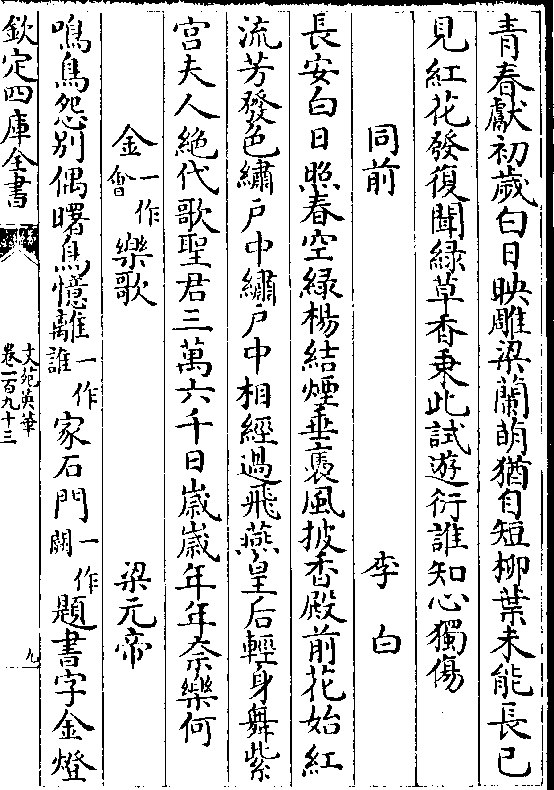 青春獻初歲白日映雕梁蘭萌猶自短柳葉未能長已
見紅花發復聞緑草香乗此試遊衍誰知心獨傷
同前 李白
長安白日照春空緑楊結煙垂裊風披香殿前花始紅
流芳發色繡户中繡户中相經過飛燕皇后輕身舞紫
宫夫人絶代歌聖君三萬六千日嵗嵗年年奈樂何
金一作會樂歌 梁元帝
鳴鳥怨别偶曙鳥憶離一作誰家石門一作闕題書字金燈
欽定四庫全書
文苑英華
卷一百九十三
九